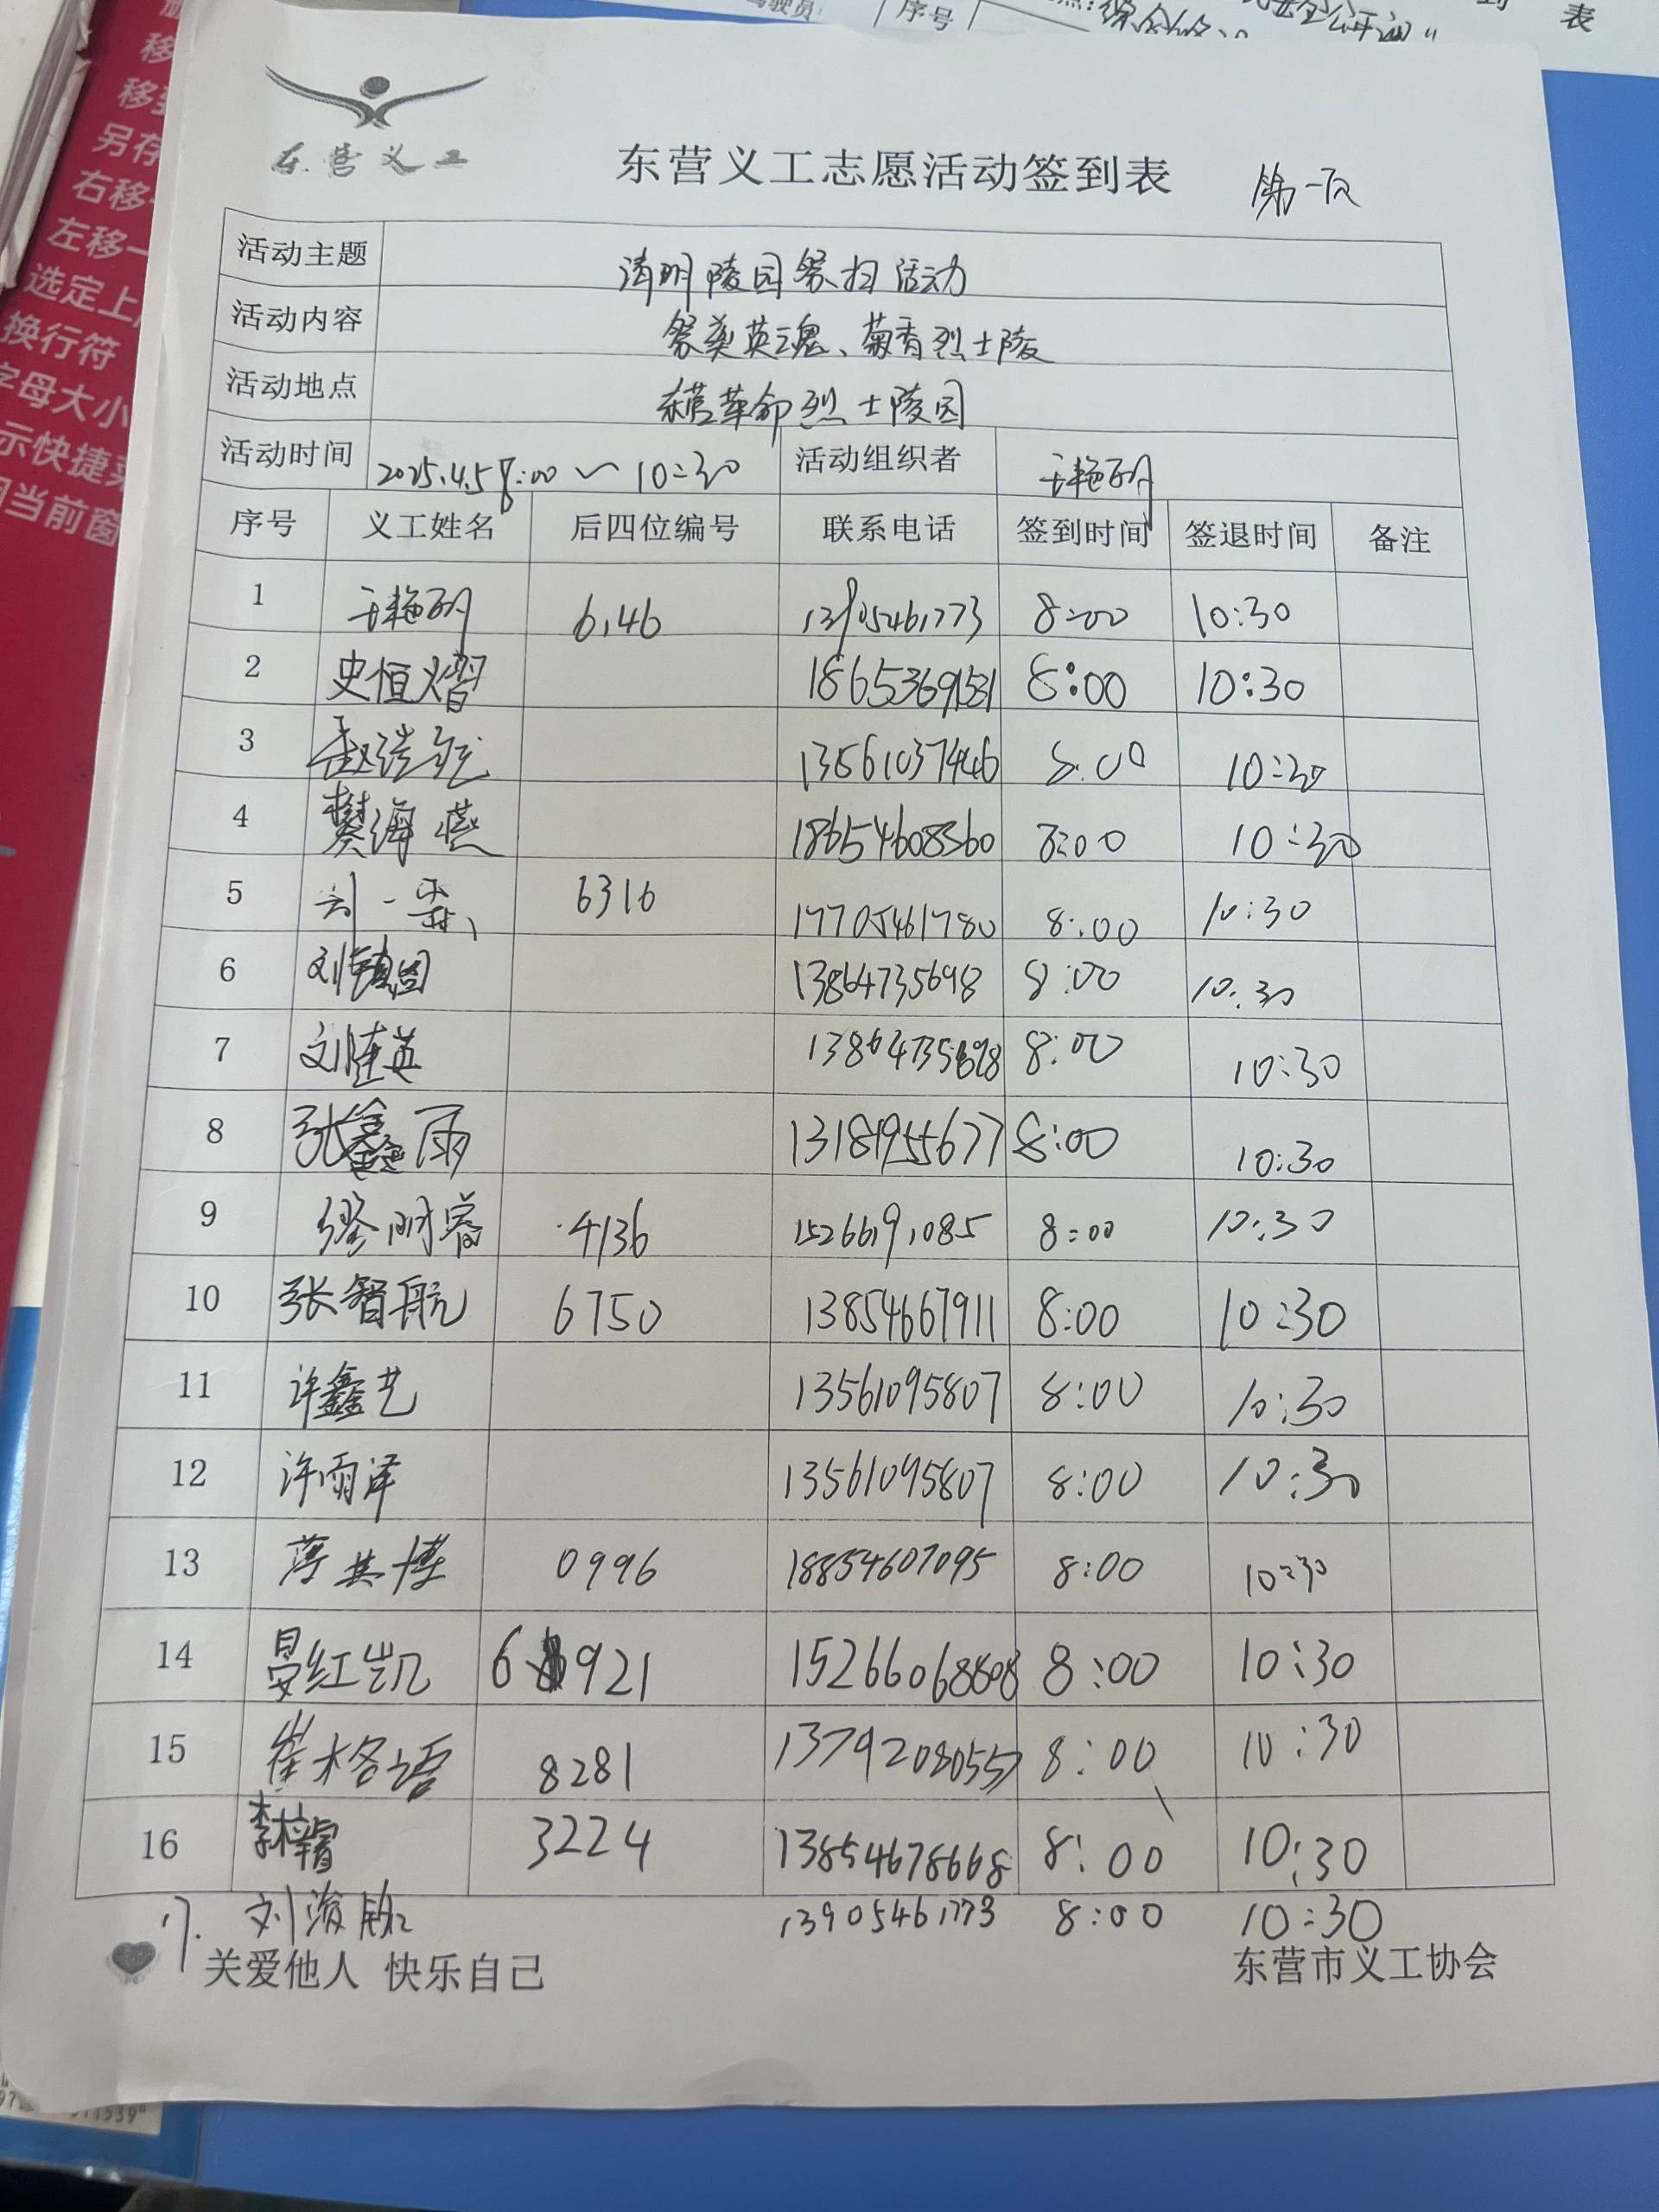 序号
表
移
另存
右移
左移一
选定上
换行符
字母大小
示快捷菜
当前窗
东营义工
东营义工志愿活动签到表 第一页
活动主题 清明陵园祭扫活动
活动内容 祭奠英魂、菊香烈士陵
活动地点 东营革命烈士陵园
活动时间 2025.4.5 8:00~10:30 活动组织者
序号 义工姓名 后四位编号 联系电话 签到时间 签退时间 备注
1 6146 13905461773 8:00 10:30
2 史恒熠 18653691531 8:00 10:30
3 赵浩 13561037446 8:00 10:30
4 樊海燕 18654608360 8:00 10:30
5 刘一霖 6316 17705461780 8:00 10:30
6 刘镇国 13864735698 8:00 10:30
7 刘建英 13864735698 8:00 10:30
8 张鑫雨 13181955677 8:00 10:30
9 缪明睿 4136 15266191085 8:00 10:30
10 张智航 6750 13854667911 8:00 10:30
11 许鑫艺 13561095807 8:00 10:30
12 许雨泽 13561095807 8:00 10:30
13 蒋其博 0996 18854607095 8:00 10:30
14 晏红凯 6921 15266068808 8:00 10:30
15 崔格语 8281 13792080557 8:00 10:30
16 李梓睿 3224 13854678668 8:00 10:30
17. 刘俊 13905461773 8:00 10:30
关爱他人 快乐自己 东营市义工协会